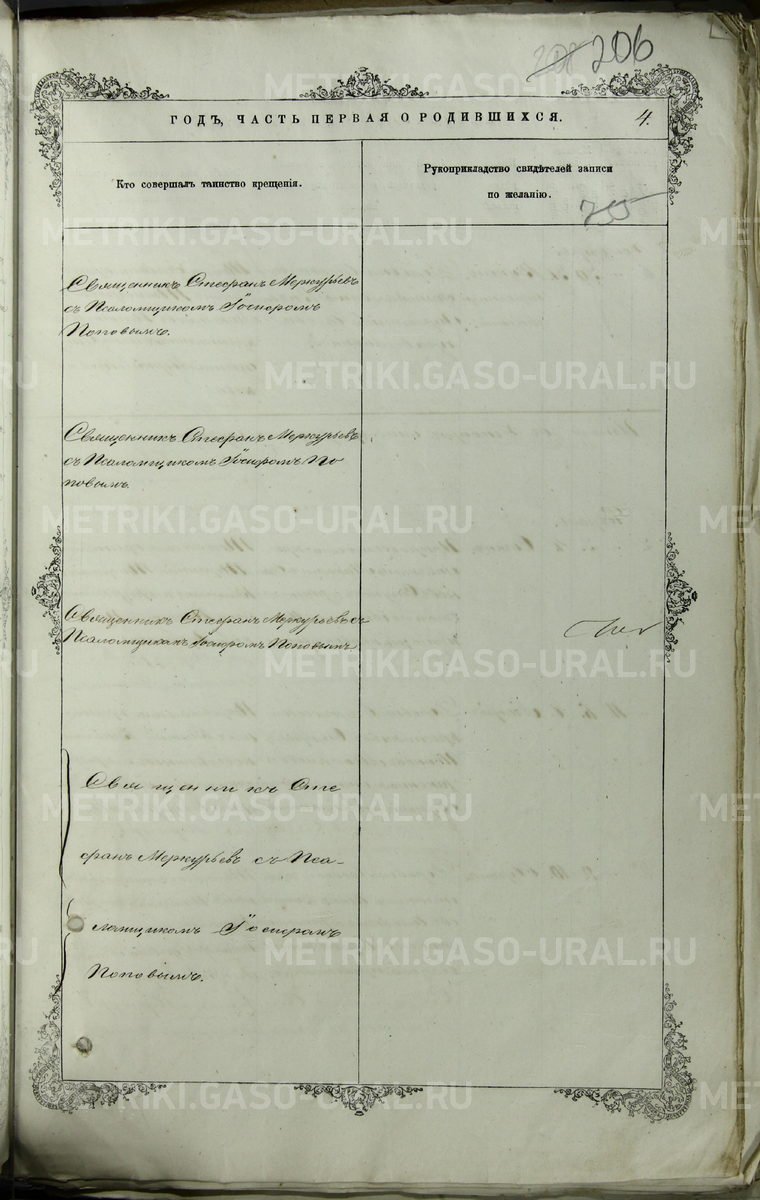 206
ГОДЪ, ЧАСТЬ ПЕРВАЯ О РОДИВШИХСЯ.
4.
Кто совершалъ таинство крещенія.
Рукоприкладство свидѣтелей записи
по желанію.
Священникъ Стефанъ Меркурьевъ
съ Псаломщикомъ Іосифомъ
Поповымъ.
Священникъ Стефанъ Меркурьевъ
съ Псаломщикомъ Іосифомъ По
повымъ.
Священникъ Стефанъ Меркурьевъ съ
Псаломщикомъ Іосифомъ Поповымъ.
Священникъ Сте
фанъ Меркурьевъ съ Пса-
ломщикомъ Іосифомъ
Поповымъ.
METRIKI.GASO-URAL.RU